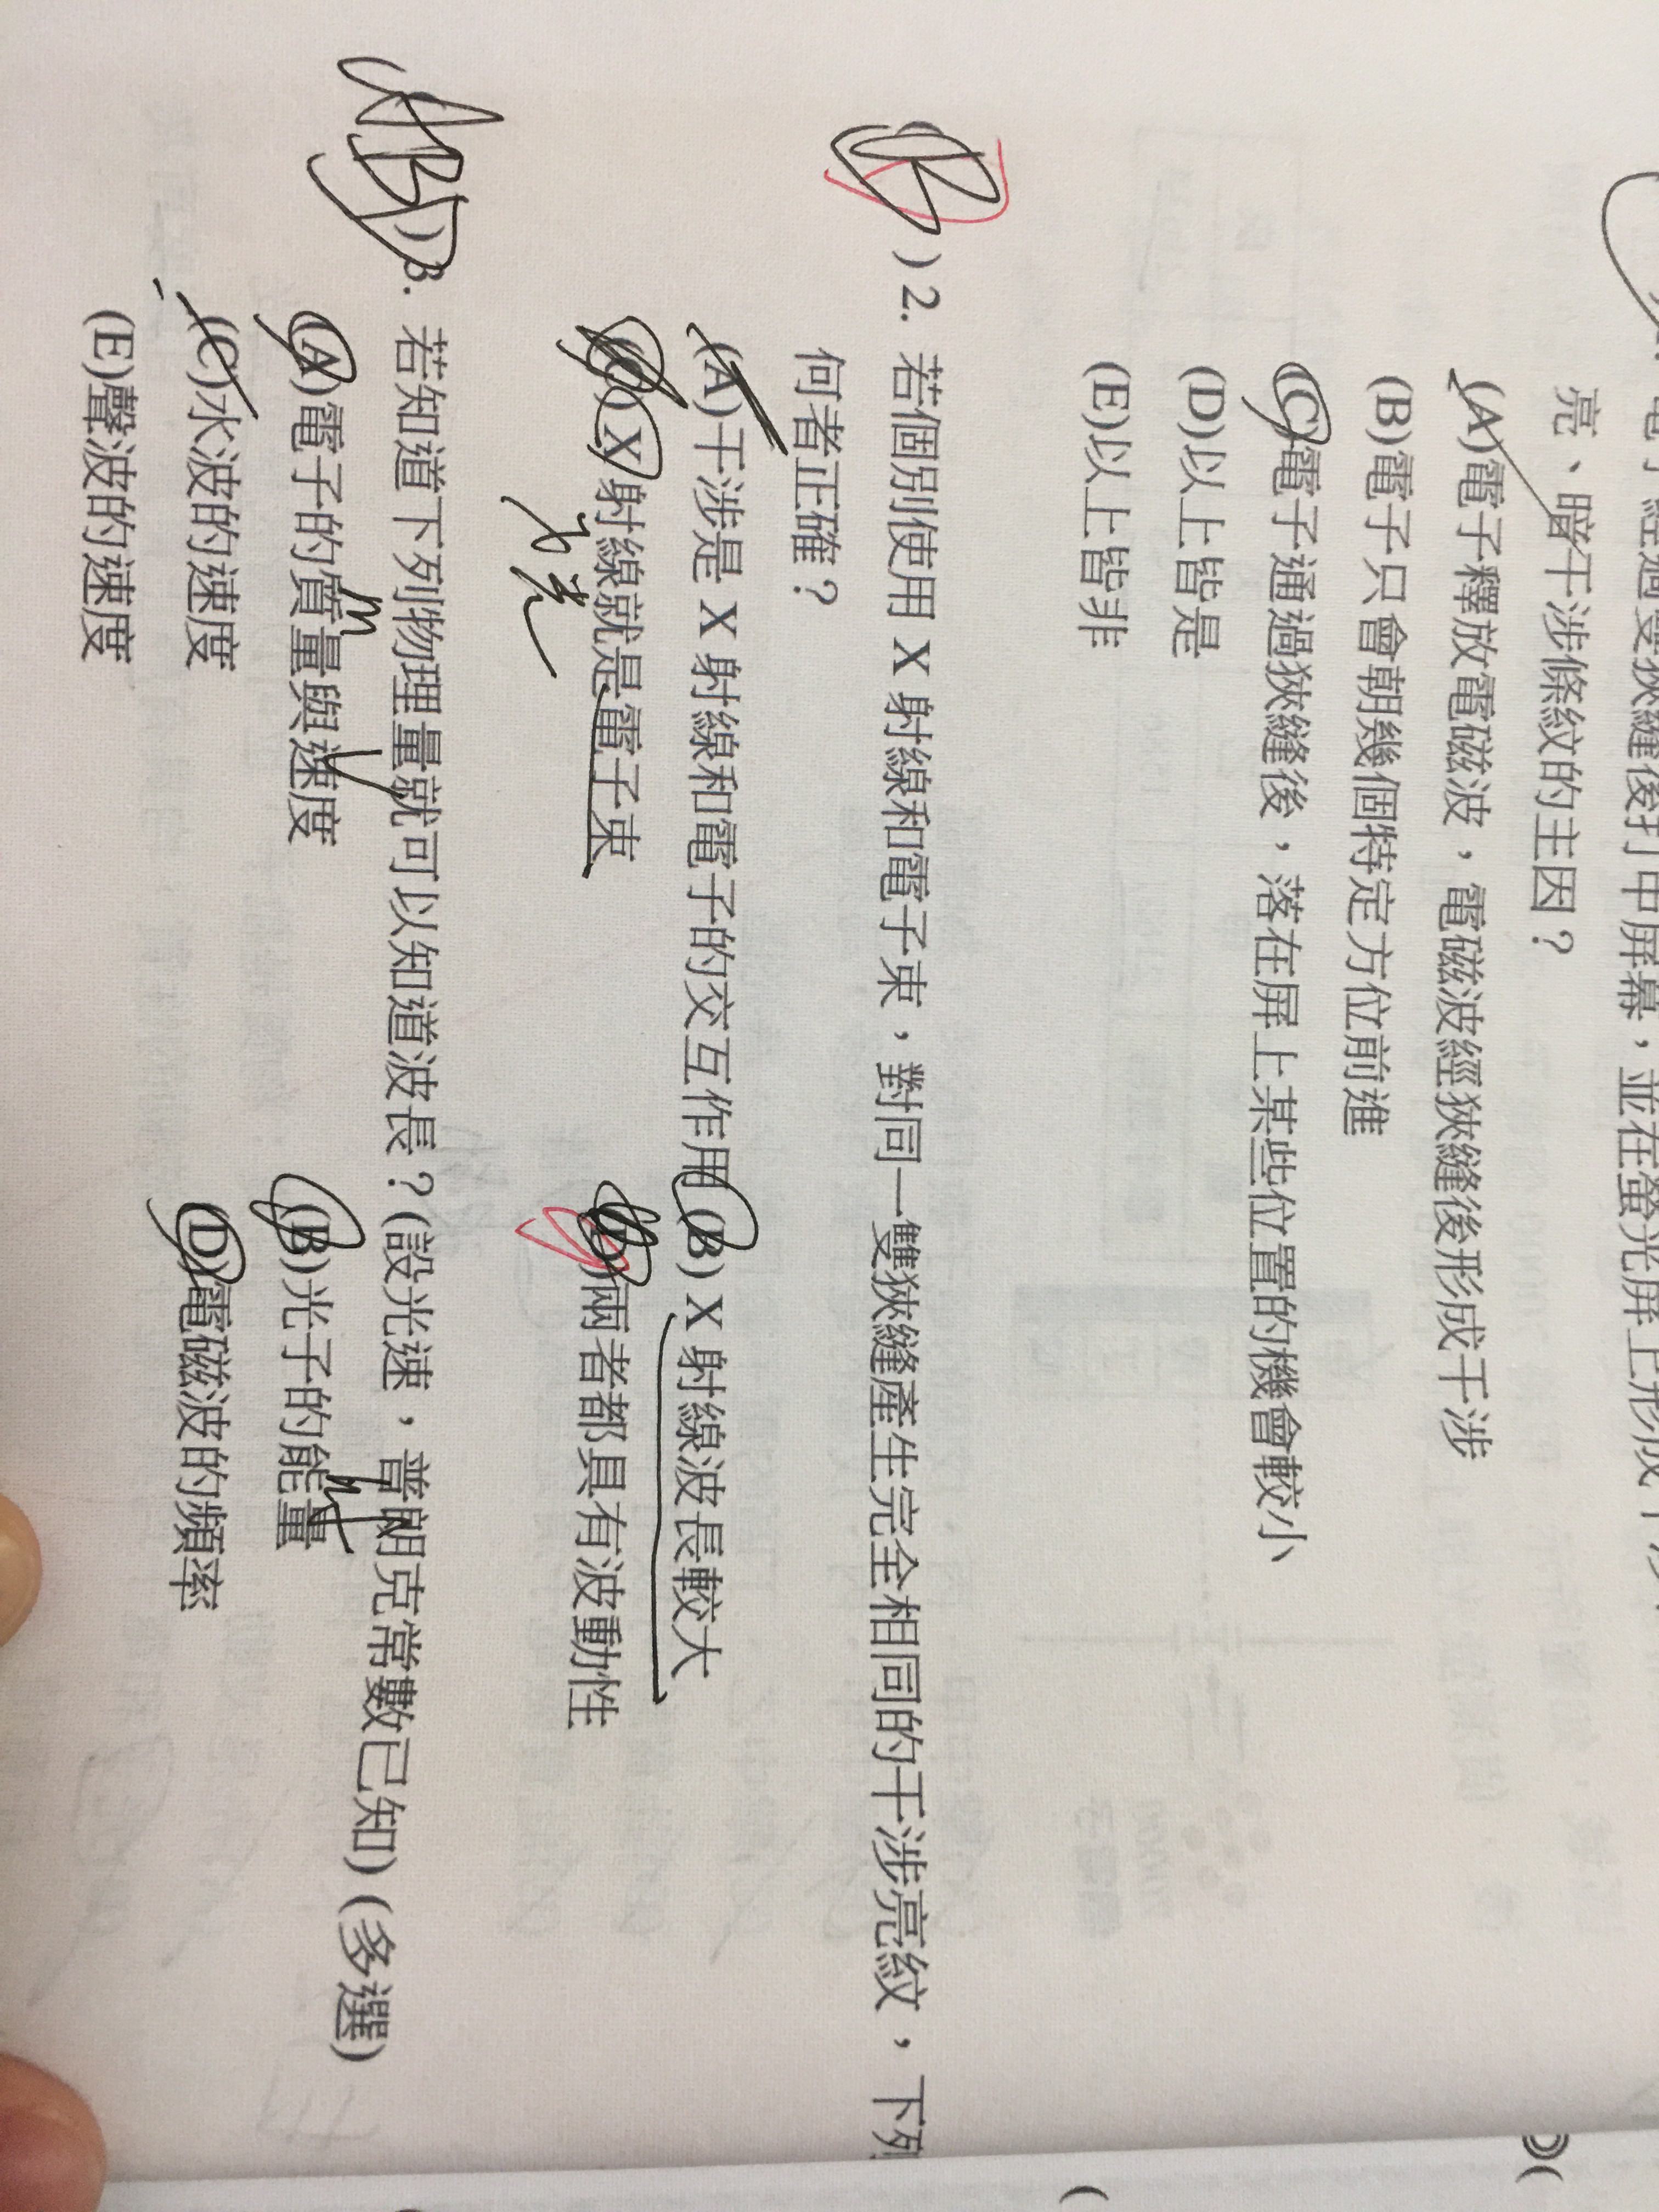 電子經過雙狹縫後打中屏幕，並在螢光屏上形成干涉
亮、暗干涉條紋的主因？
(A)電子釋放電磁波，電磁波經狹縫後形成干涉
(B)電子只會朝幾個特定方位前進
(C)電子通過狹縫後，落在屏上某些位置的機會較小
(D)以上皆是
(E)以上皆非
B )2. 若個別使用 X 射線和電子束，對同一雙狹縫產生完全相同的干涉亮紋，下列
何者正確？
(A)干涉是 X 射線和電子的交互作用 (B) X 射線波長較大
(C) X 射線就是電子束 (D)兩者都具有波動性
光
ABD )3. 若知道下列物理量就可以知道波長？(設光速，普朗克常數已知) (多選)
m v hf
(A)電子的質量與速度 (B)光子的能量
(C)水波的速度 (D)電磁波的頻率
(E)聲波的速度